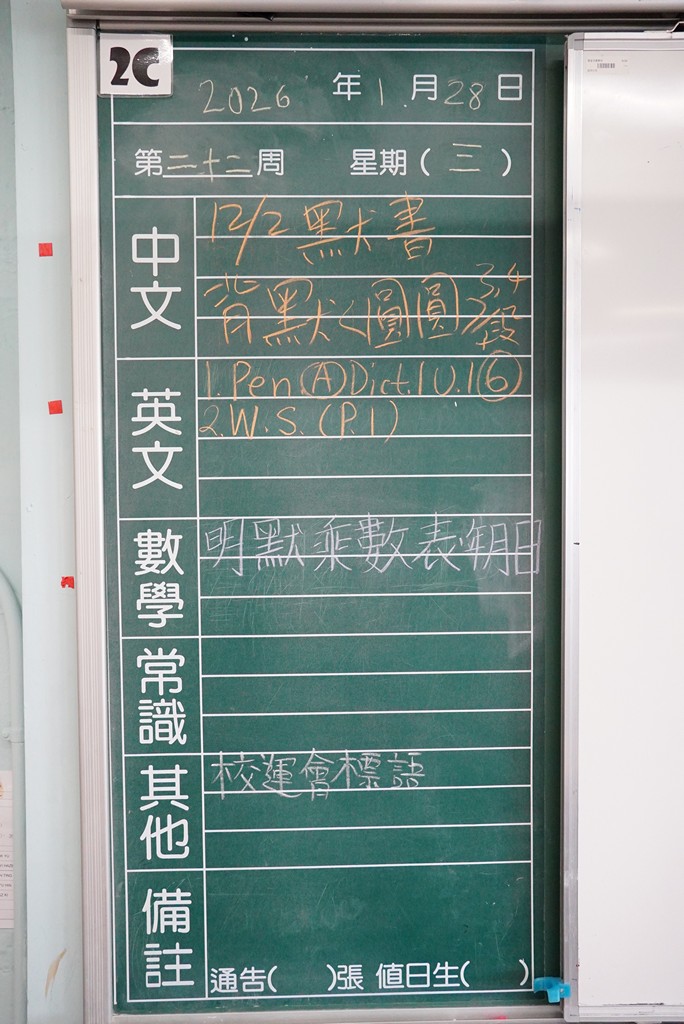 2C
2026 年 1 月 28 日
第二十二周 星期(三)
中文
12/2 默書
背默<圓圓>3,4段
英文
1. Pen.(A) Dict. 1 U.1 ⑥
2. W.S. (P.1)
數學
明默乘數表
常識
其他
校運會標語
備註
通告( )張 值日生( )